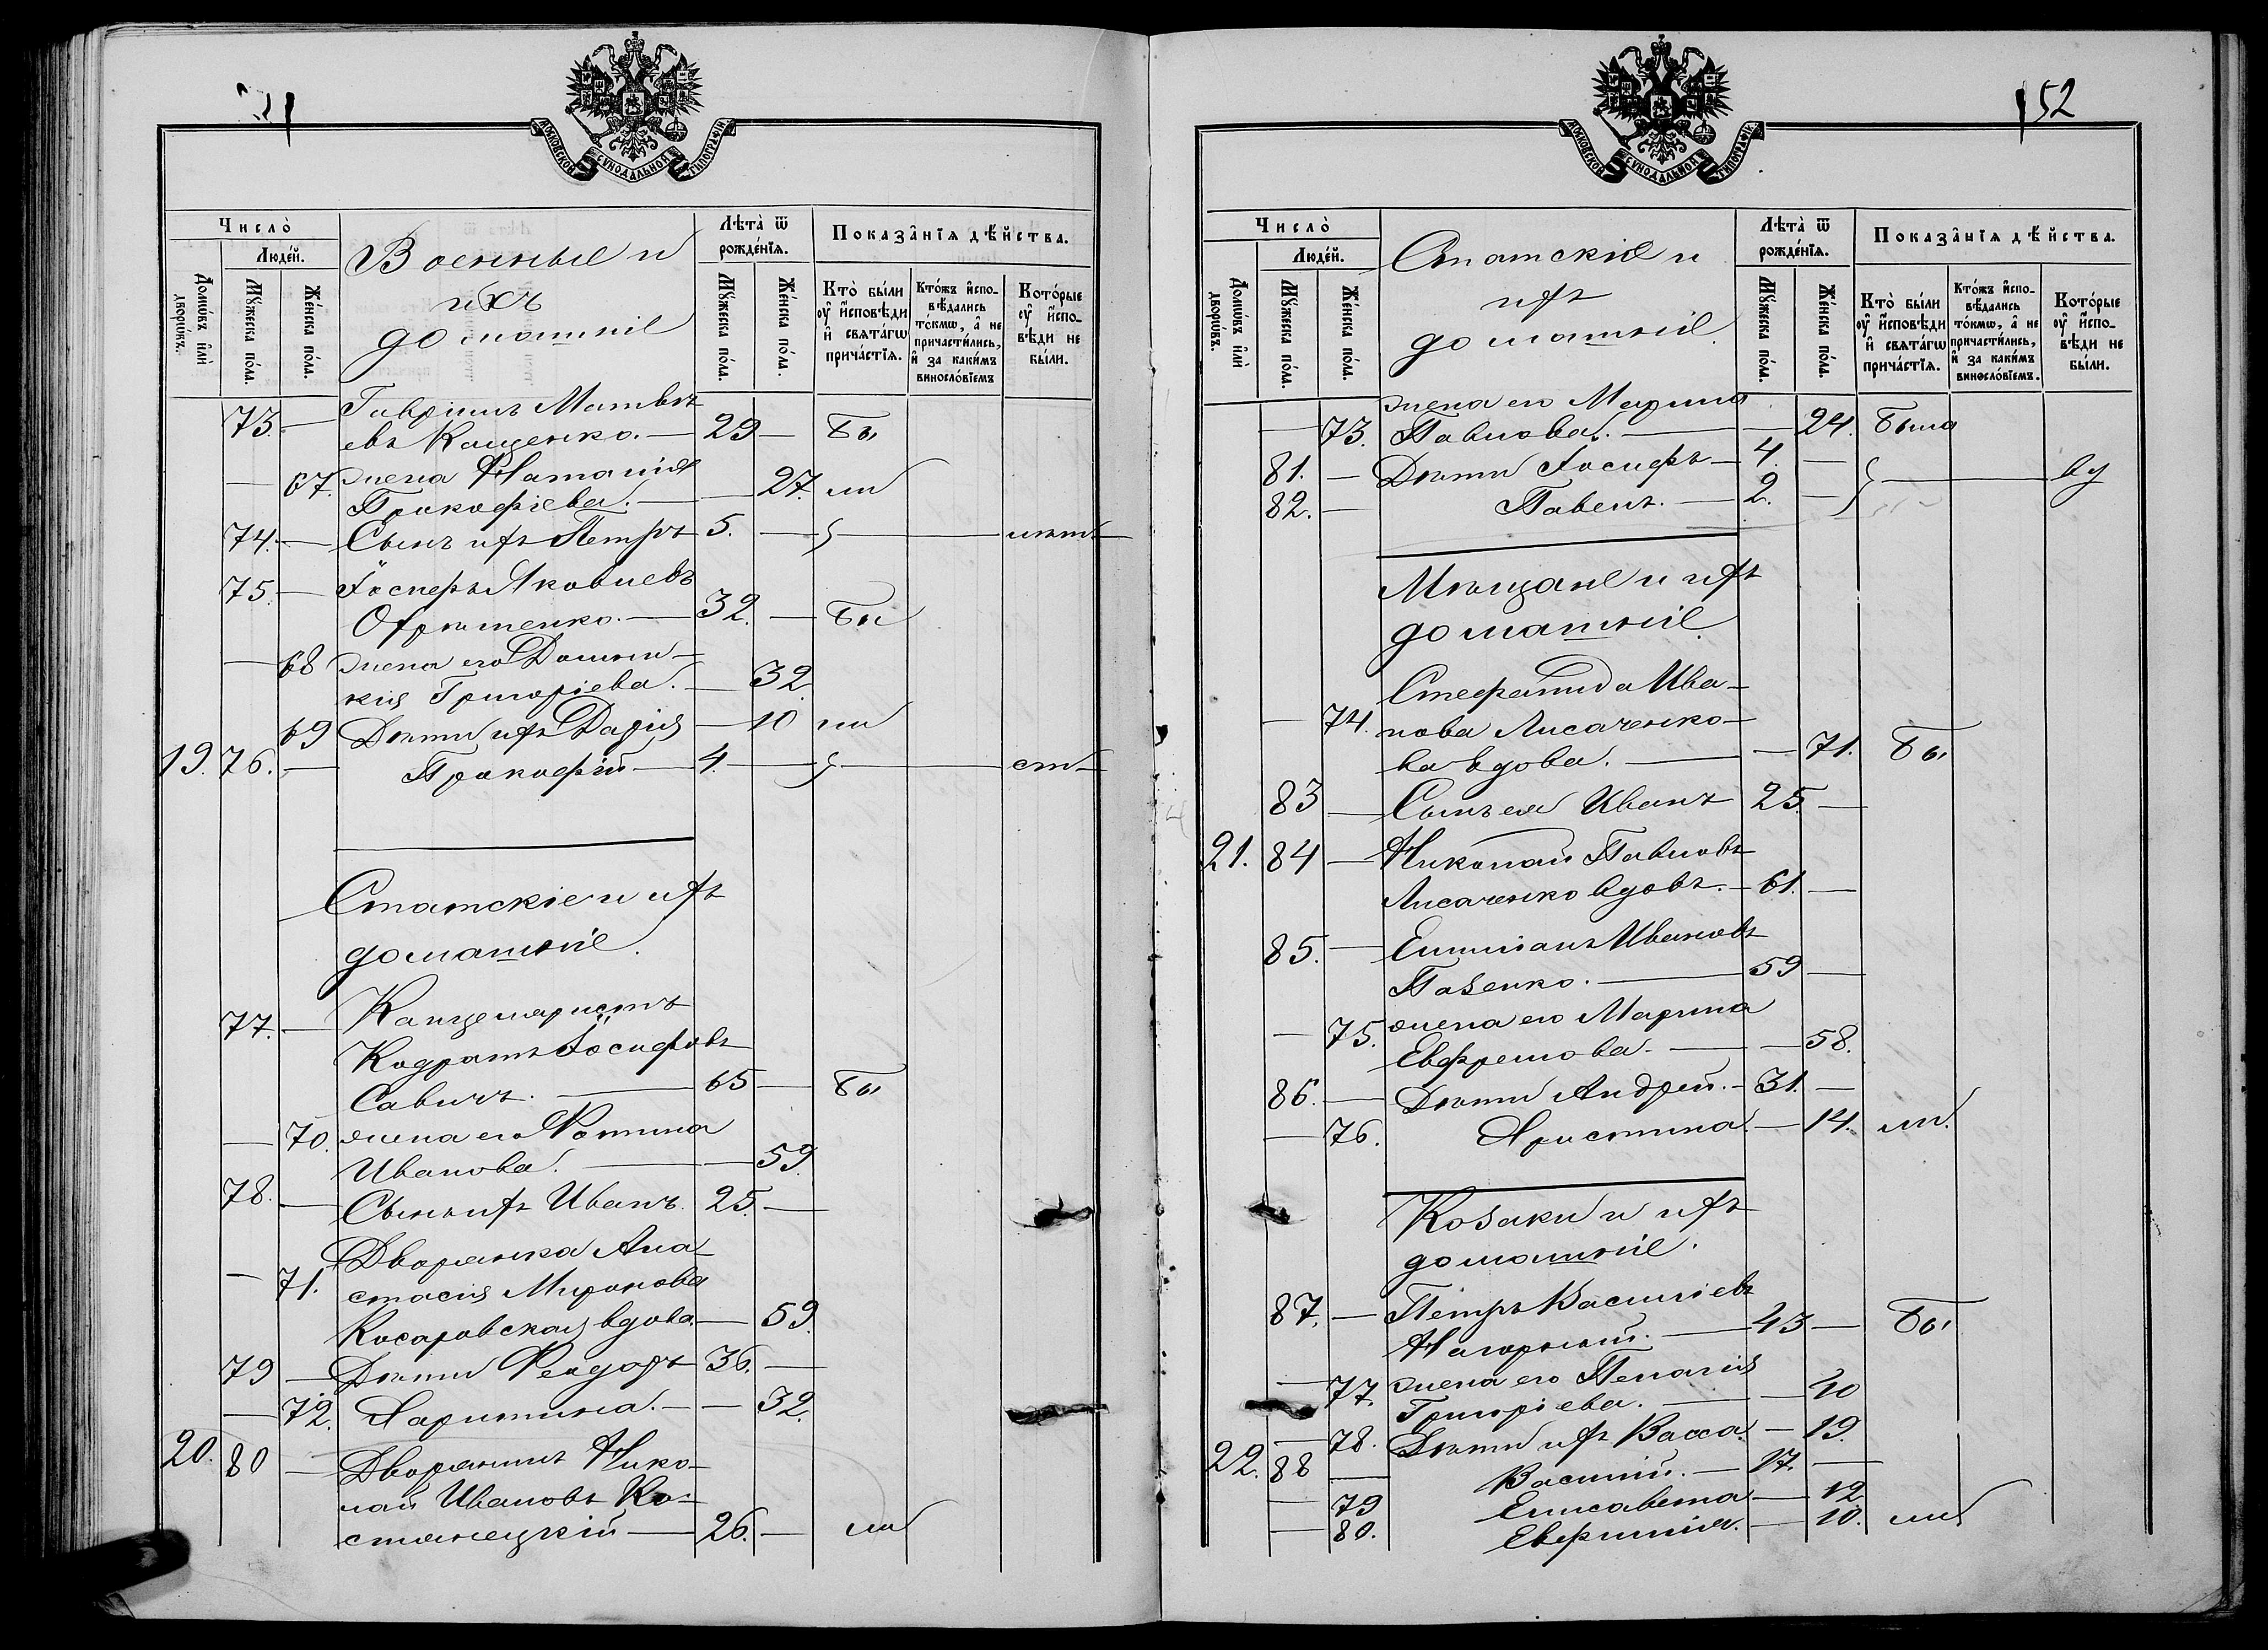 МОСКОВСКОЙ СѴНОДАЛЬНОЙ ТИПОГРАФІИ
Число̀
Людей.
Домѡвъ и҆лѝ дворѡвъ.
Мꙋжеска по́ла.
Же́нска по́ла.
Военные и
ихъ
домашніе
Лѣта̀ ѿ рожде́нїѧ.
Мꙋжеска по́ла.
Же́нска по́ла.
Показа̑нїѧ дѣ́йства.
Кто̀ бы́ли ᲂу҆ и҆сповѣди и҆ свѧта́гѡ прича́стїѧ.
Кто́жъ и҆спо-вѣдались то́кмѡ, а҆ не причасти́лись, и҆ за каки́мъ виносло́вїемъ
Кото́рые ᲂу҆ и҆спо-вѣди не бы́ли.
73. — Гавріилъ Матвѣ-
евъ Кащенко. — 29 — Бы
— 67. жена Наталія
Прокофіева. — — 27. ли
74. — Сынъ ихъ Петръ 5. — — лѣт
75. — Іосифъ Яковлевъ
Охрѣменко. — 32. — Бы
— 68 жена его Домни-
кія Григоріева. — 32.
69 Дѣти ихъ Дарія — 10 ли
19. 76. — Прокофій — 4. — — ст
Статскіе и ихъ
домашніе.
77. — Канцеляристъ
Кодратъ Іосифовъ
Савичъ. — 65 — Бы
— 70. жена его Фотина
Иванова. — — 59.
78. — Сынъ ихъ Иванъ. 25. —
— 71. Дворянка Ана-
стасія Миронова
Косаровская вдова. — 59.
79 — Дѣти Феодоръ 36. —
— 72. Харитина. — — 32.
20. 80 — Дворянинъ Нико-
лай Ивановъ Ко-
стянецкій — 26. — ли
152
МОСКОВСКОЙ СѴНОДАЛЬНОЙ ТИПОГРАФІИ
Число̀
Людей.
Домѡвъ и҆лѝ дворѡвъ.
Мꙋжеска по́ла.
Же́нска по́ла.
Статскіе и
ихъ
домашніе.
Лѣта̀ ѿ рожде́нїѧ.
Мꙋжеска по́ла.
Же́нска по́ла.
Показа̑нїѧ дѣ́йства.
Кто̀ бы́ли ᲂу҆ и҆сповѣди и҆ свѧта́гѡ прича́стїѧ.
Кто́жъ и҆спо-вѣдались то́кмѡ, а҆ не причасти́лись, и҆ за каки́мъ виносло́вїемъ.
Кото́рые ᲂу҆ и҆спо-вѣди не бы́ли.
жена его Марина
— 73. Павлова. — — 24. Была
81. — Дѣти Іосифъ — 4. —
82. — Павелъ. — 2. —
Мѣщане и ихъ
домашніе.
Стефанида Ива-
— 74. нова Лисаченко-
ва вдова. — — 71. Бы
83 — Сынъ ея Иванъ 25. —
21. 84 — Николай Павловъ
Лисаченко вдовъ. — 61. —
85. — Емиліанъ Ивановъ
Паѕенко. — 59 —
— 75. жена его Марина
Евфремова. — — 58.
86. — Дѣти Андрей. — 31. —
— 76. Христина. — 14. ли.
Коѕаки и ихъ
домашніе.
87. — Петръ Василіевъ
Нагорный. — 43 — Бы
— 77. жена его Пелагія
Григоріева. — — 40
— 78. Дѣти ихъ Васса. — 19.
22. 88 — Василій. — 17. —
— 79 Елисавета — 12.
— 80. Евфимія. — 10. ли